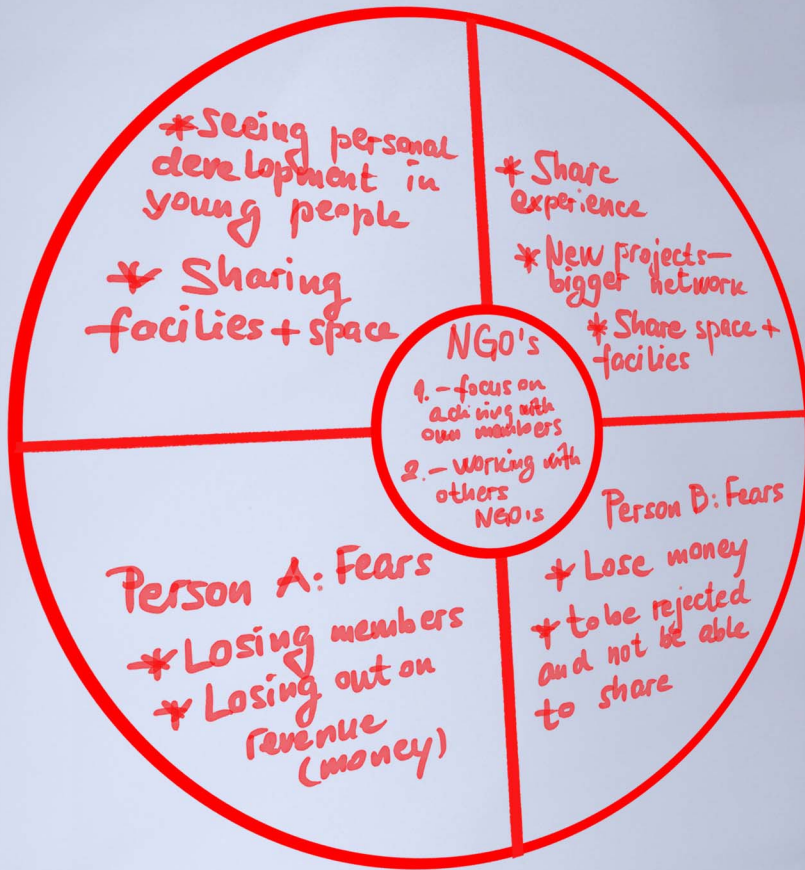 * Seeing personal
development in
young people
* Sharing
facilies + space
* Share
experience
* New projects—
bigger network
* Share space +
facilies
NGO's
1. - focus on
achiving with
own members
2. - working with
others
NGO's
Person A: Fears
* Losing members
* Losing out on
revenue
(money)
Person B: Fears
* Lose money
* to be rejected
and not be able
to share